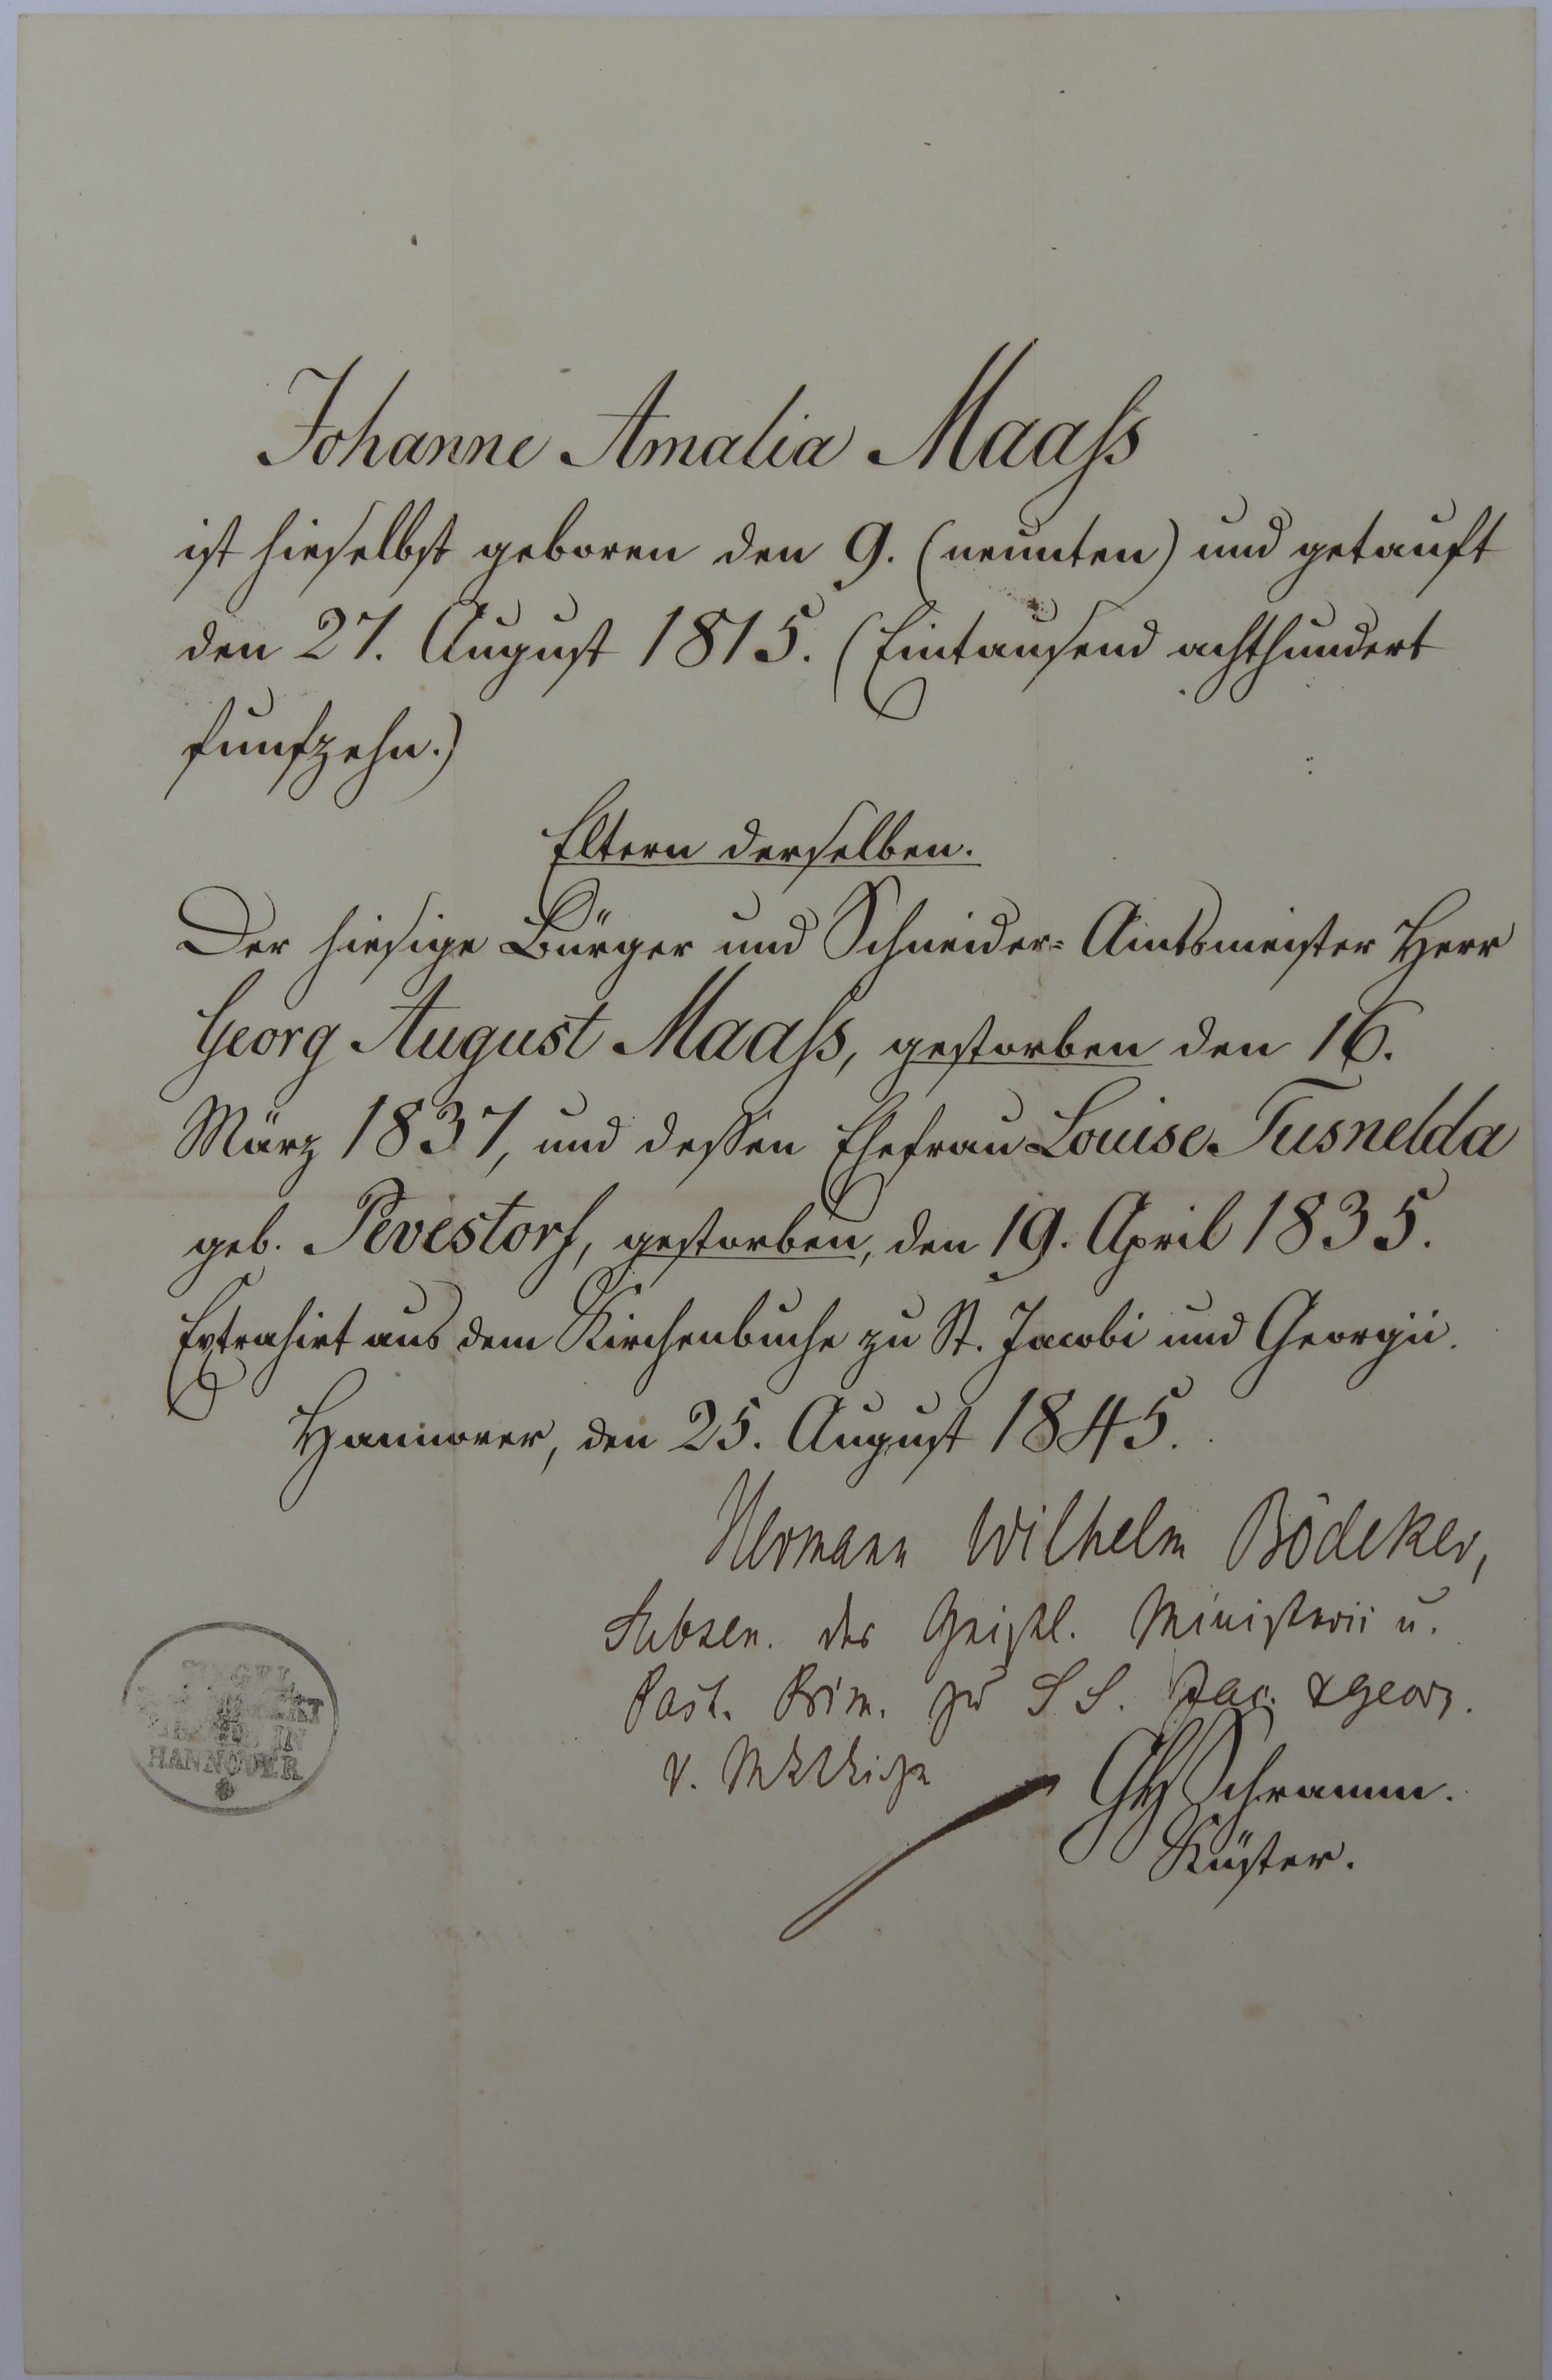 Johanne Amalia Maaß
ist hieselbst geboren den 9. (neunten) und getauft
den 27. August 1815. (Eintausend achthundert
funfzehn.)
Eltern derselben.
Der hiesige Bürger und Schneider-Amtsmeister Herr
Georg August Maaß, gestorben den 16.
März 1837, und dessen Ehefrau Louise Tusnelda
geb. Pevestorf, gestorben, den 19. April 1835.
Extrahirt aus dem Kirchenbuche zu St. Jacobi und Georgii.
Hannover, den 25. August 1845.
Hermann Wilhelm Bödeker,
Subsen. des Geistl. Ministerii u.
Past. Prim. zu S S. Jac. & Georg.
GH Schramm.
Küster.
SIEGEL
IN
HANNOVER